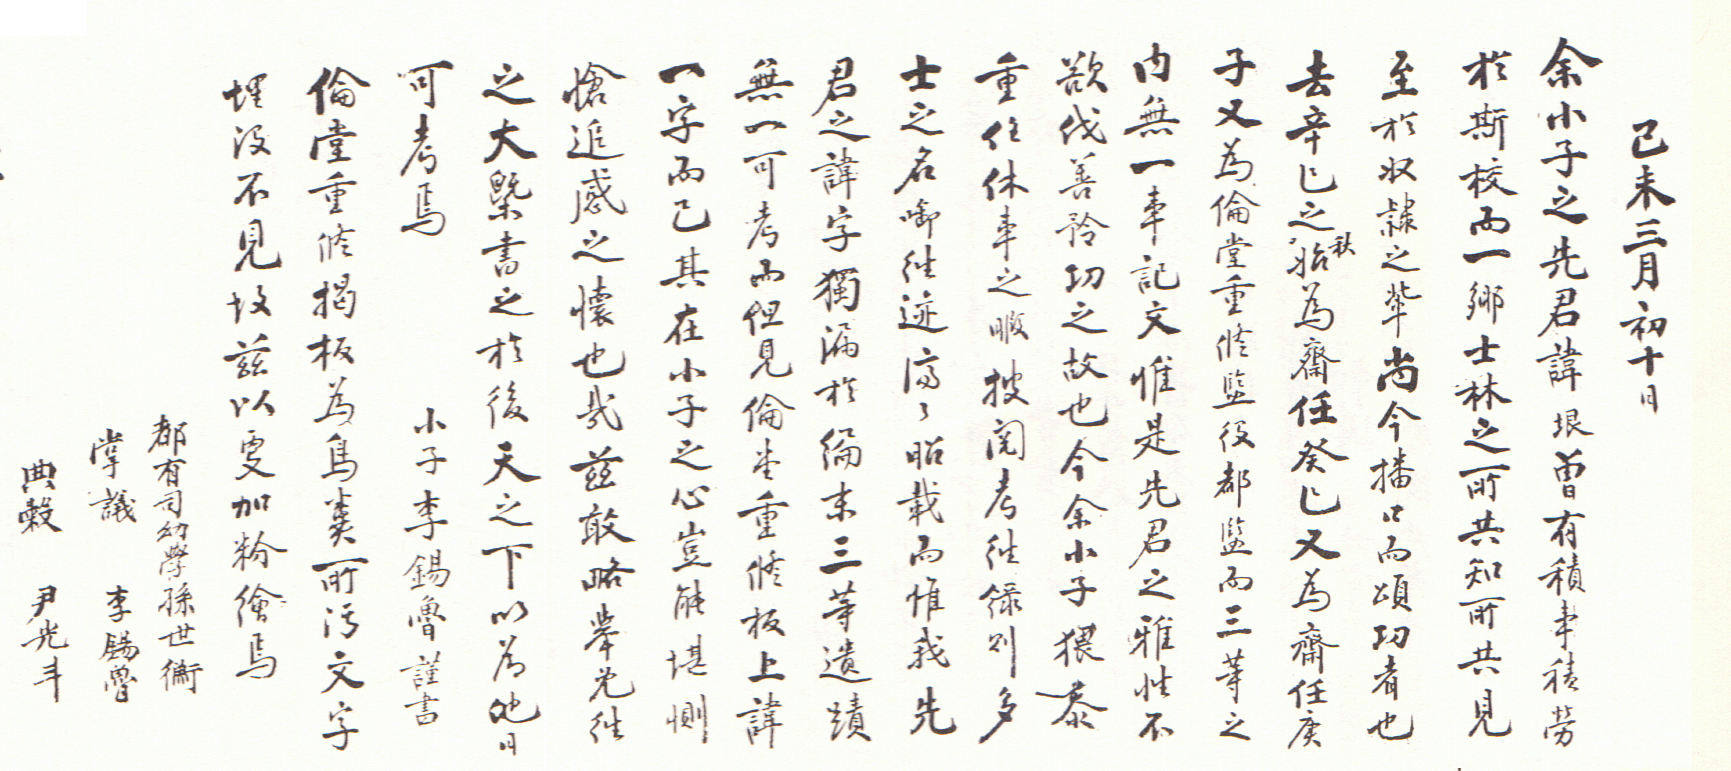 己未三月初十日
余小子之先君諱垠曾有積事積勞
於斯校而一鄉士林之所共知所共見
至於收隸之輩尚今播口而頌功者也
去辛巳之秋始為齋任癸巳又為齋任庚
子又為倫堂重修監役都監而三等之
內無一事記文惟是先君之雅性不
欲伐善矜功之故也今余小子猥忝
重任休事之暇披閱考往錄則多
士之名啣往迹濟〻昭載而惟我先
君之諱字獨漏於編末三等遺蹟
無一可考而但見倫堂重修板上諱
一字而已其在小子之心豈能堪惻
愴追感之懷也哉茲敢略擧先往
之大槩書之於後天之下以為他日
可考焉 小子李錫魯謹書
倫堂重修揭板為鳥糞所污文字
埋沒不見故茲以更加粉繪焉
都有司幼學孫世衞
掌議 李錫魯
典穀 尹光斗